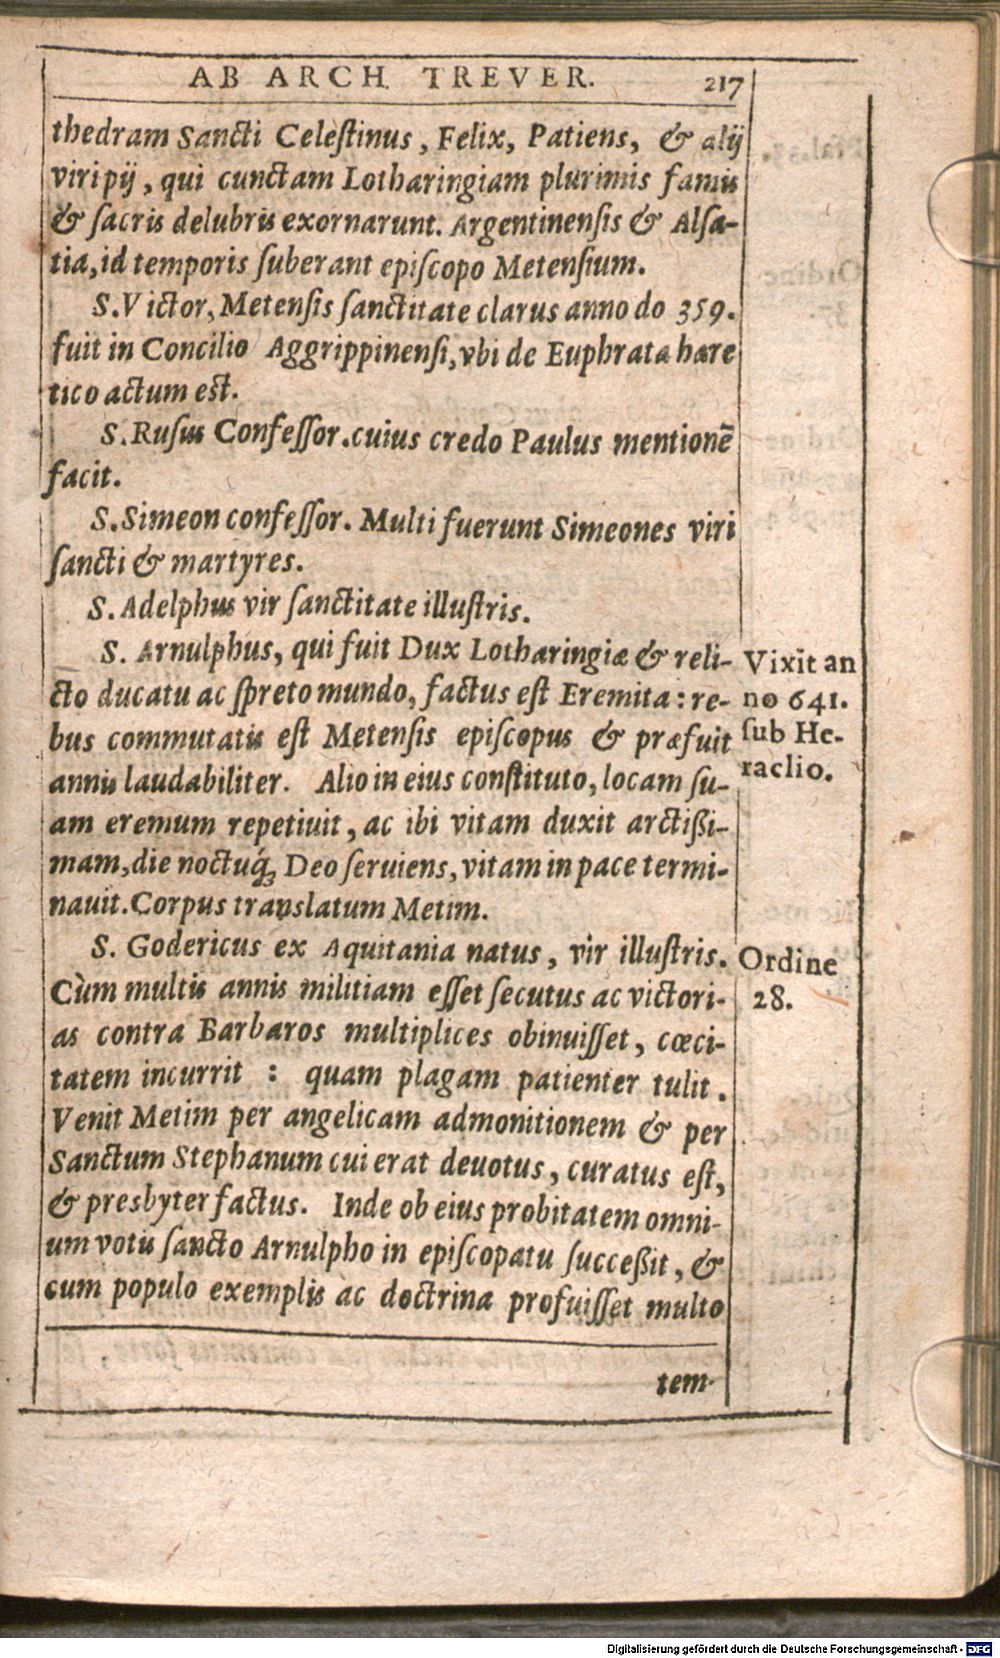 AB ARCH. TREVER. 217
thedram Sancti Celeſtinus, Felix, Patiens, & alij
viri pij, qui cunctam Lotharingiam plurimis famis
& ſacris delubris exornarunt. Argentinenſis & Alſa-
tia, id temporis ſuberant epiſcopo Metenſium.
S. Victor, Metenſis ſanctitate clarus anno do 359.
fuit in Concilio Aggrippinenſi, vbi de Euphrata hære
tico actum eſt.
S. Rufus Confeſſor. cuius credo Paulus mentionē
facit.
S. Simeon confeſſor. Multi fuerunt Simeones viri
ſancti & martyres.
S. Adelphus vir ſanctitate illuſtris.
S. Arnulphus, qui fuit Dux Lotharingiæ & reli-
cto ducatu ac ſpreto mundo, factus eſt Eremita: re-
bus commutatis eſt Metenſis epiſcopus & præfuit
annis laudabiliter. Alio in eius conſtituto, locam ſu-
am eremum repetiuit, ac ibi vitam duxit arctißi-
mam, die noctuq́ꝫ Deo ſeruiens, vitam in pace termi-
nauit. Corpus translatum Metim.
Vixit an
no 641.
ſub He-
raclio.
S. Godericus ex Aquitania natus, vir illuſtris.
Cùm multis annis militiam eſſet ſecutus ac victori-
as contra Barbaros multiplices obinuiſſet, cœci-
tatem incurrit : quam plagam patienter tulit.
Venit Metim per angelicam admonitionem & per
Sanctum Stephanum cui erat deuotus, curatus eſt,
& presbyter factus. Inde ob eius probitatem omni-
um votis ſancto Arnulpho in epiſcopatu ſucceßit, &
cum populo exemplis ac doctrina profuiſſet multo
Ordine
28.
tem-
Digitalisierung gefördert durch die Deutsche Forschungsgemeinschaft - DFG